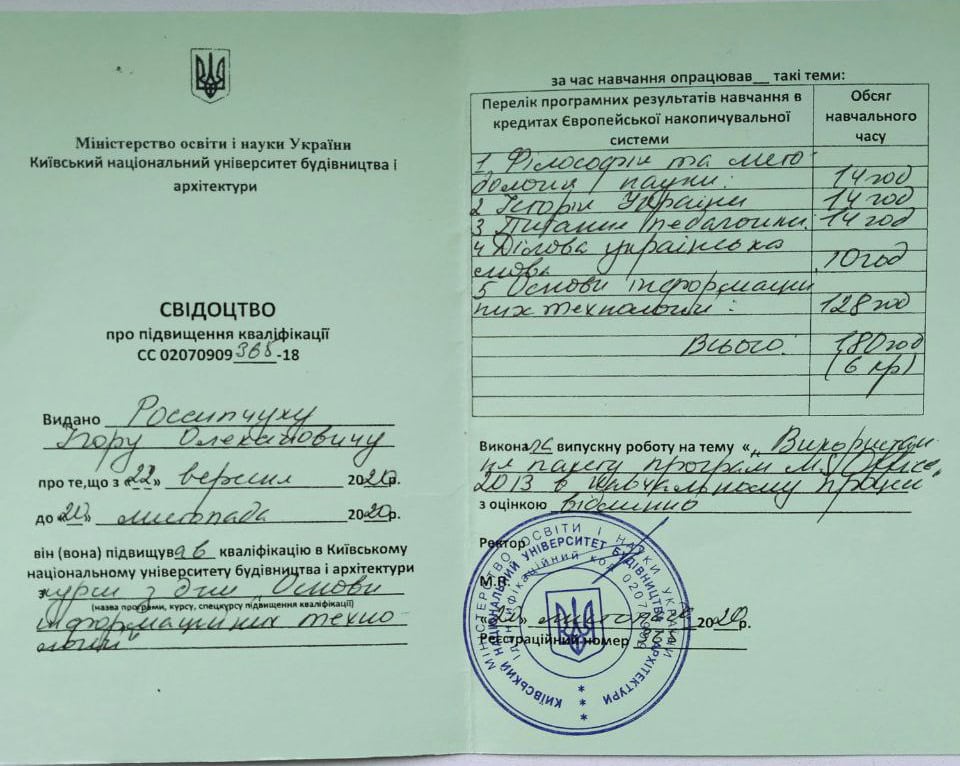 Міністерство освіти і науки України
Київський національний університет будівництва і
архітектури
СВІДОЦТВО
про підвищення кваліфікації
СС 02070909 368 -18
Видано Россипчуку
Ігору Олександровичу
про те,що з «22» вересня 2020р.
до «20» листопада 2020р.
він (вона) підвищував кваліфікацію в Київському
національному університеті будівництва і архітектури
з курси з дисц. "Основи
(назва програми, курсу, спецкурсу підвищення кваліфікації)
інформаційних техно-
логій"
за час навчання опрацював__ такі теми:
Перелік програмних результатів навчання в
кредитах Європейської накопичувальної
системи
Обсяг
навчального
часу
1 Філософія та мето-
дологія науки: 14 год
2 Історія України 14 год
3 Питання педагогики. 14 год
4 Ділова українська
мова 10 год
5 Основи інформаций
них технологій: 128 год
Всього: 180 год
(6 кр)
Виконав випускну роботу на тему « "Використан-
ня пакету програм MS Office
2013 в навчальному процесі"
з оцінкою відмінно
Ректор
М.П.
«20» листопада 2020р.
Реєстраційний номер 368
МІНІСТЕРСТВО ОСВІТИ І НАУКИ УКРАЇНИ
КИЇВСЬКИЙ НАЦІОНАЛЬНИЙ УНІВЕРСИТЕТ БУДІВНИЦТВА І АРХІТЕКТУРИ
Ідентифікаційний код 02070909